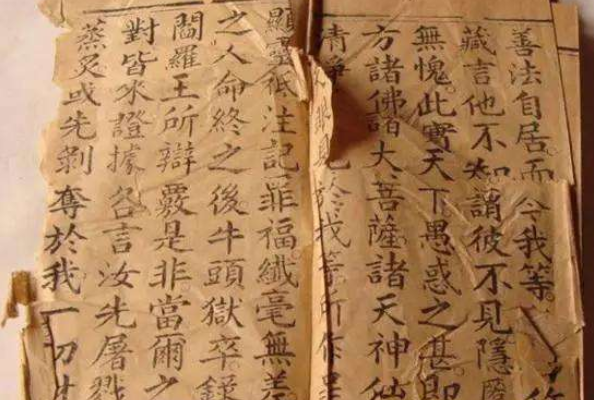 善法自居而今我等
藏言他不知謂彼不見隱慝
無愧此實天下愚惑之甚即
方諸佛諸大菩薩諸天神仙
清淨眼見於我等所作罪
顯靈祇注記罪福纖毫無差
之人命終之後牛頭獄卒錄
閻羅王所辯覈是非當爾之
對皆來證據各言汝先屠戮
蒸炙或先剝奪於我一切